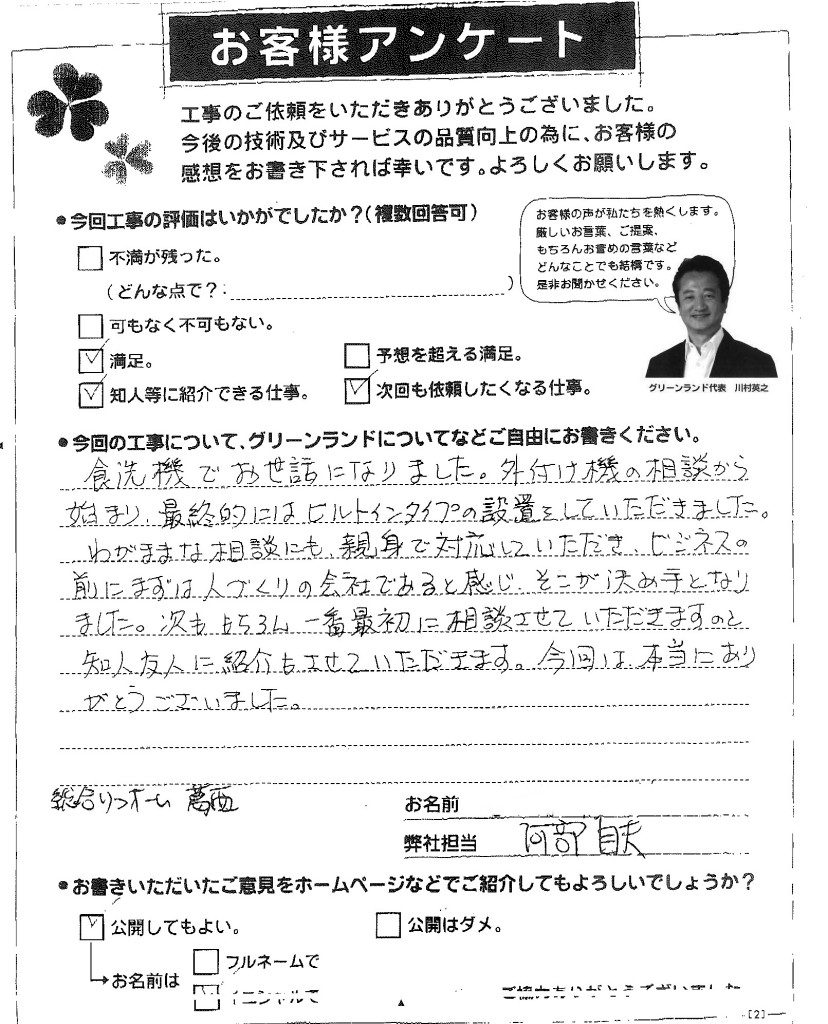 お客様アンケート
工事のご依頼をいただきありがとうございました。
今後の技術及びサービスの品質向上の為に、お客様の
感想をお書き下されば幸いです。よろしくお願いします。
●今回工事の評価はいかがでしたか？(複数回答可)
お客様の声が私たちを熱くします。
厳しいお言葉、ご提案、
もちろんお誉めの言葉など
どんなことでも結構です。
是非お聞かせください。
不満が残った。
(どんな点で？: )
可もなく不可もない。
満足。
予想を超える満足。
知人等に紹介できる仕事。
次回も依頼したくなる仕事。
グリーンランド代表 川村英之
●今回の工事について、グリーンランドについてなどご自由にお書きください。
食洗機でお世話になりました。外付け機の相談から
始まり、最終的にはビルトインタイプの設置をしていただきました。
わがままな相談にも、親身で対応していただき、ビジネスの
前にまずは人づくりの会社であると感じ、そこが決め手となり
ました。次ももちろん一番最初に相談させていただきますのと
知人友人に紹介もさせていただきます。今回は本当にあり
がとうございました。
総合リフォーム 葛西
お名前
弊社担当 阿部
●お書きいただいたご意見をホームページなどでご紹介してもよろしいでしょうか？
公開してもよい。
公開はダメ。
お名前は
フルネームで
イニシャルで
ご協力ありがとうございました
[2]